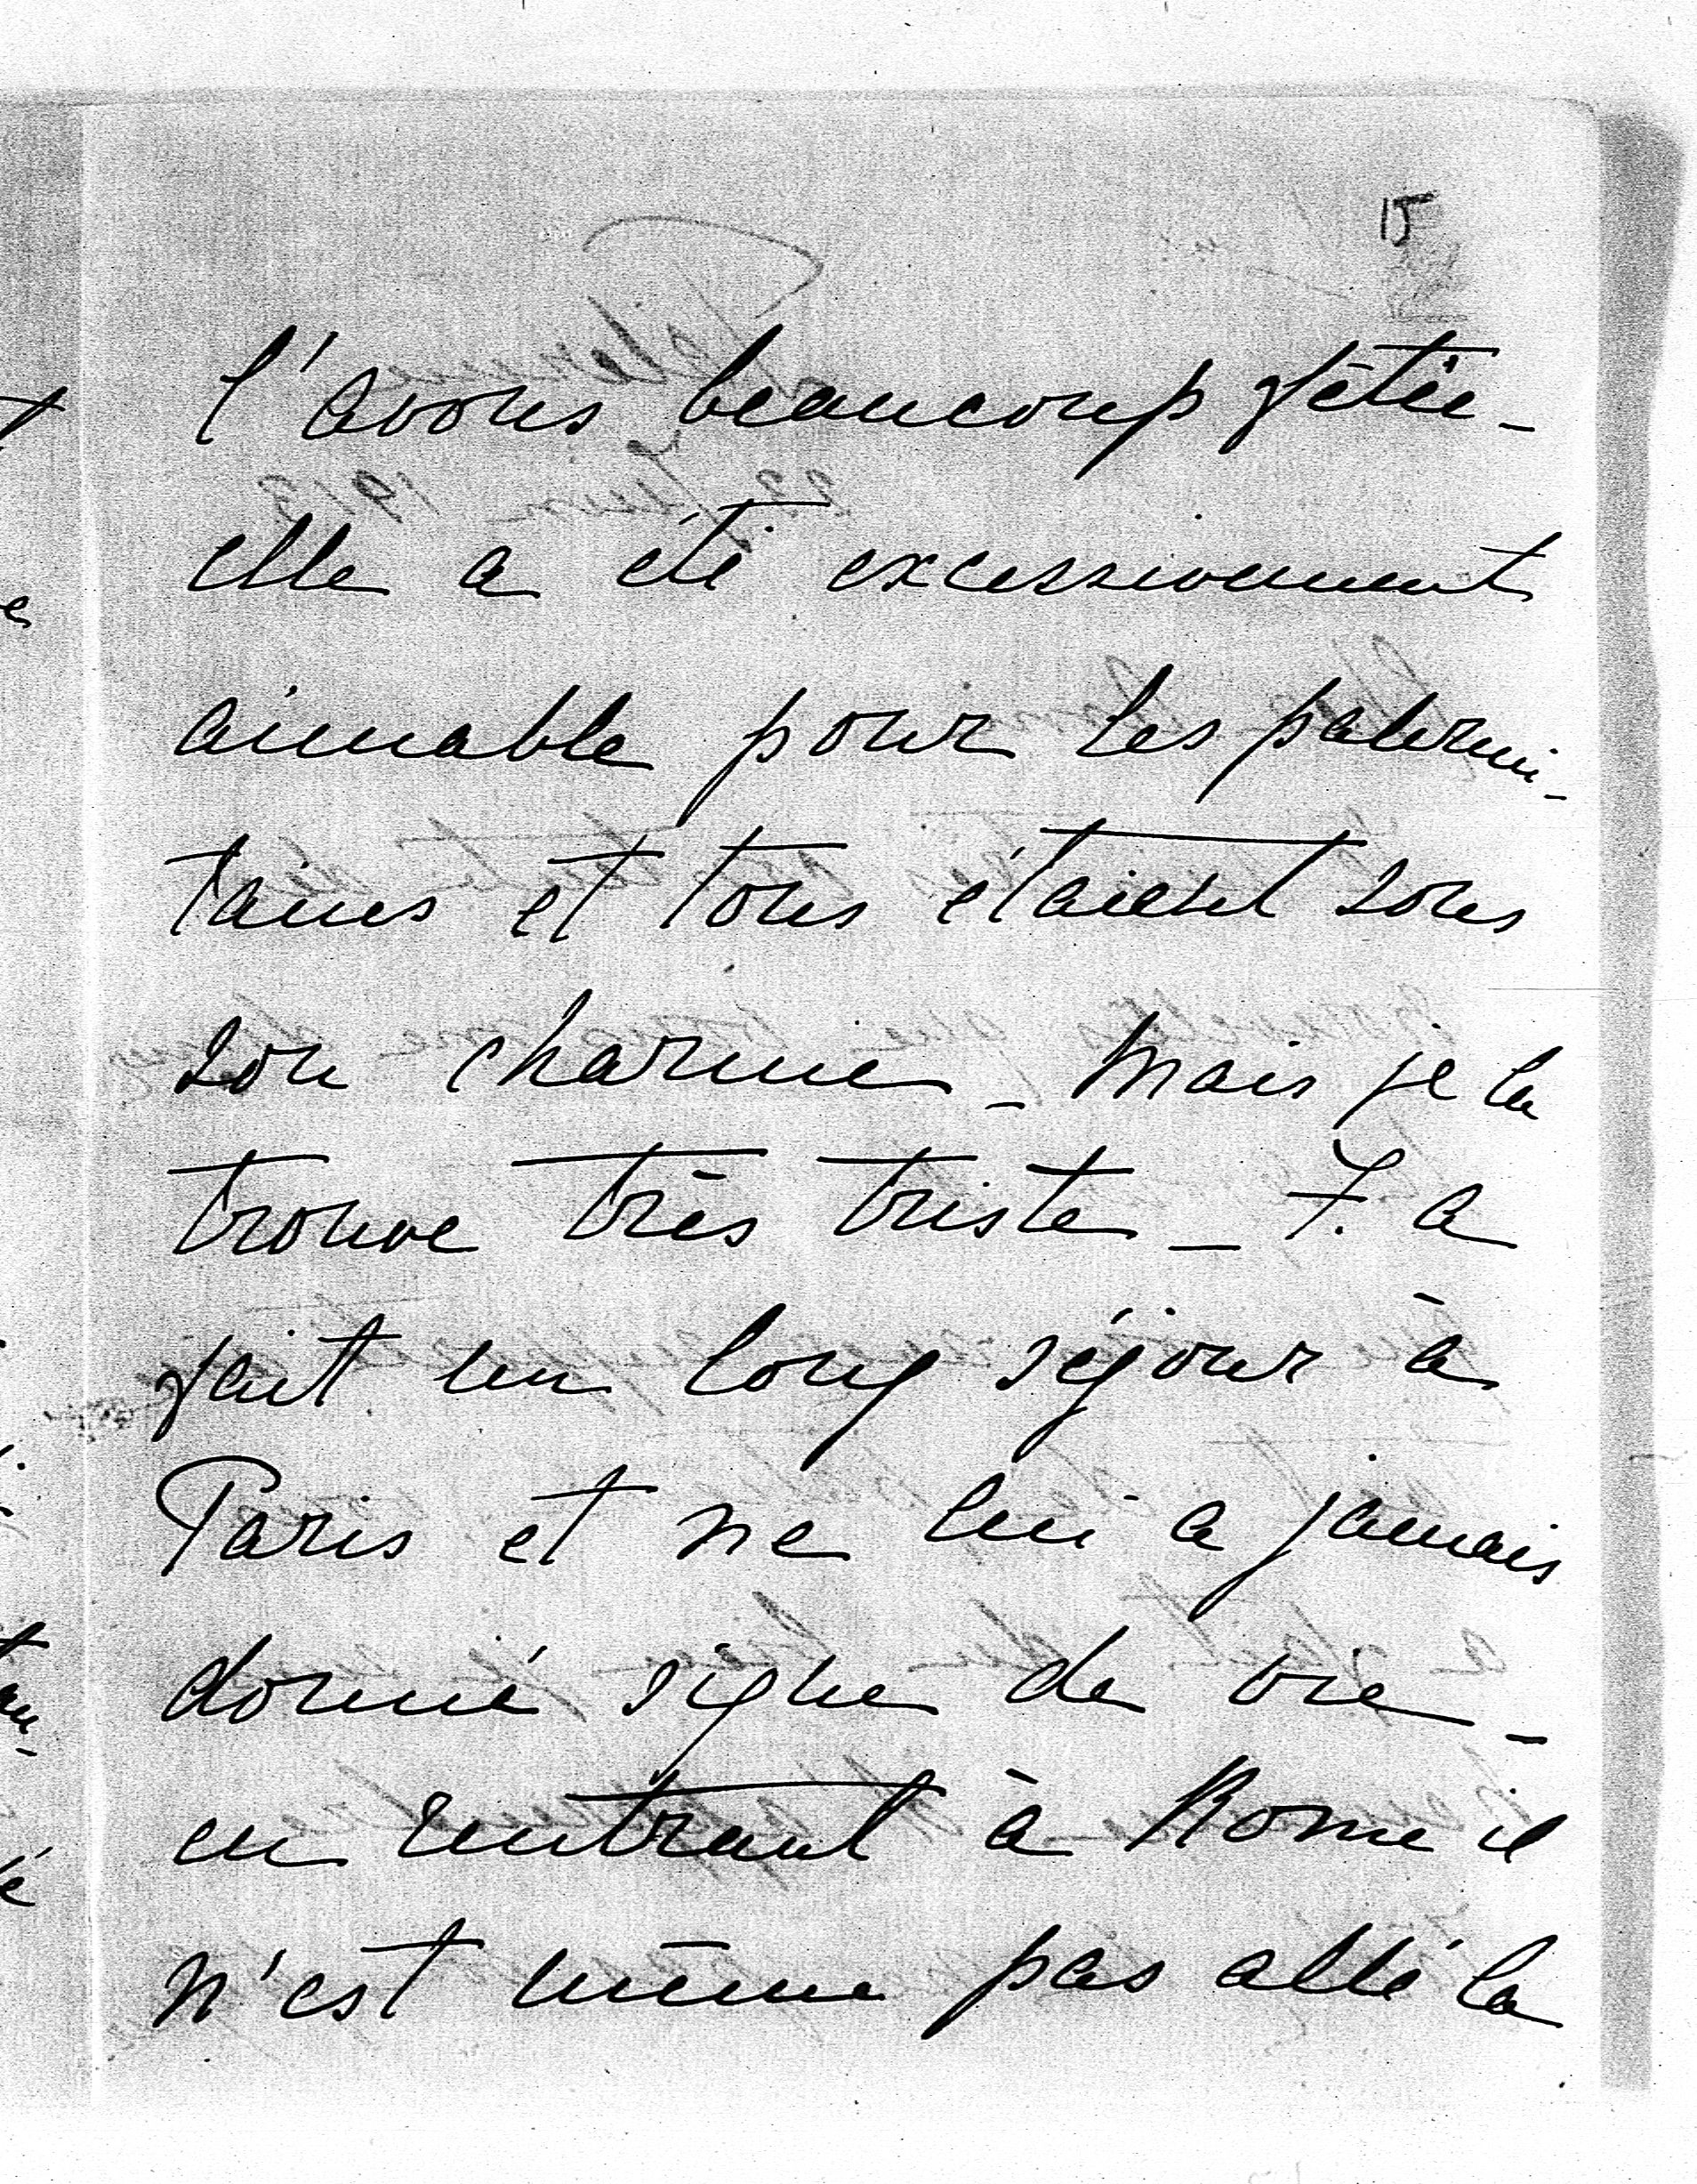 15
l'avons beaucoup fêtée –
elle a été excessivement
aimable pour les palermi-
tains et tous étaient sous
son charme – mais je la
trouve très triste – F. a
fait un long séjour à
Paris et ne lui a jamais
donné signe de vie –
en rentrant à Rome il
n'est même pas allé la